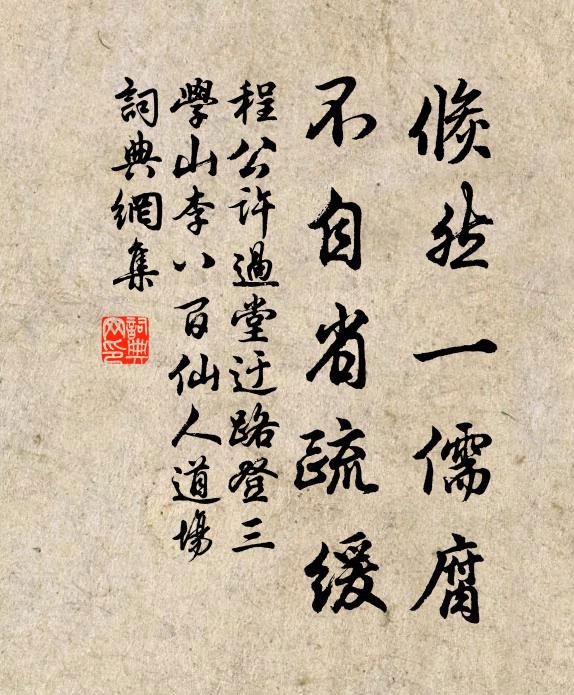 倐然一儒腐
不自省疏緩
程公許過堂迂路登三
學山李八百仙人道場
詞典網集
詞典
网印